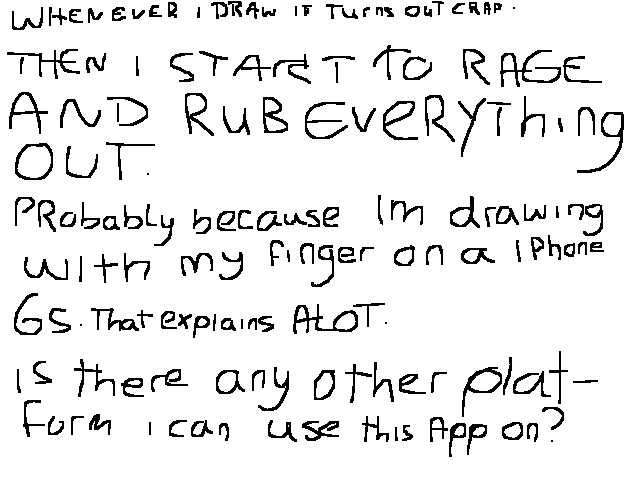 WHENEVER I DRAW IT TURNS OUT CRAP.
THEN I START TO RAGE
AND RUB EVERYThing
OUT.
PRobably because Im drawing
with my finger on a iPhone
6s. That explains ALOT.
is there any other plat-
form i can use this App on?